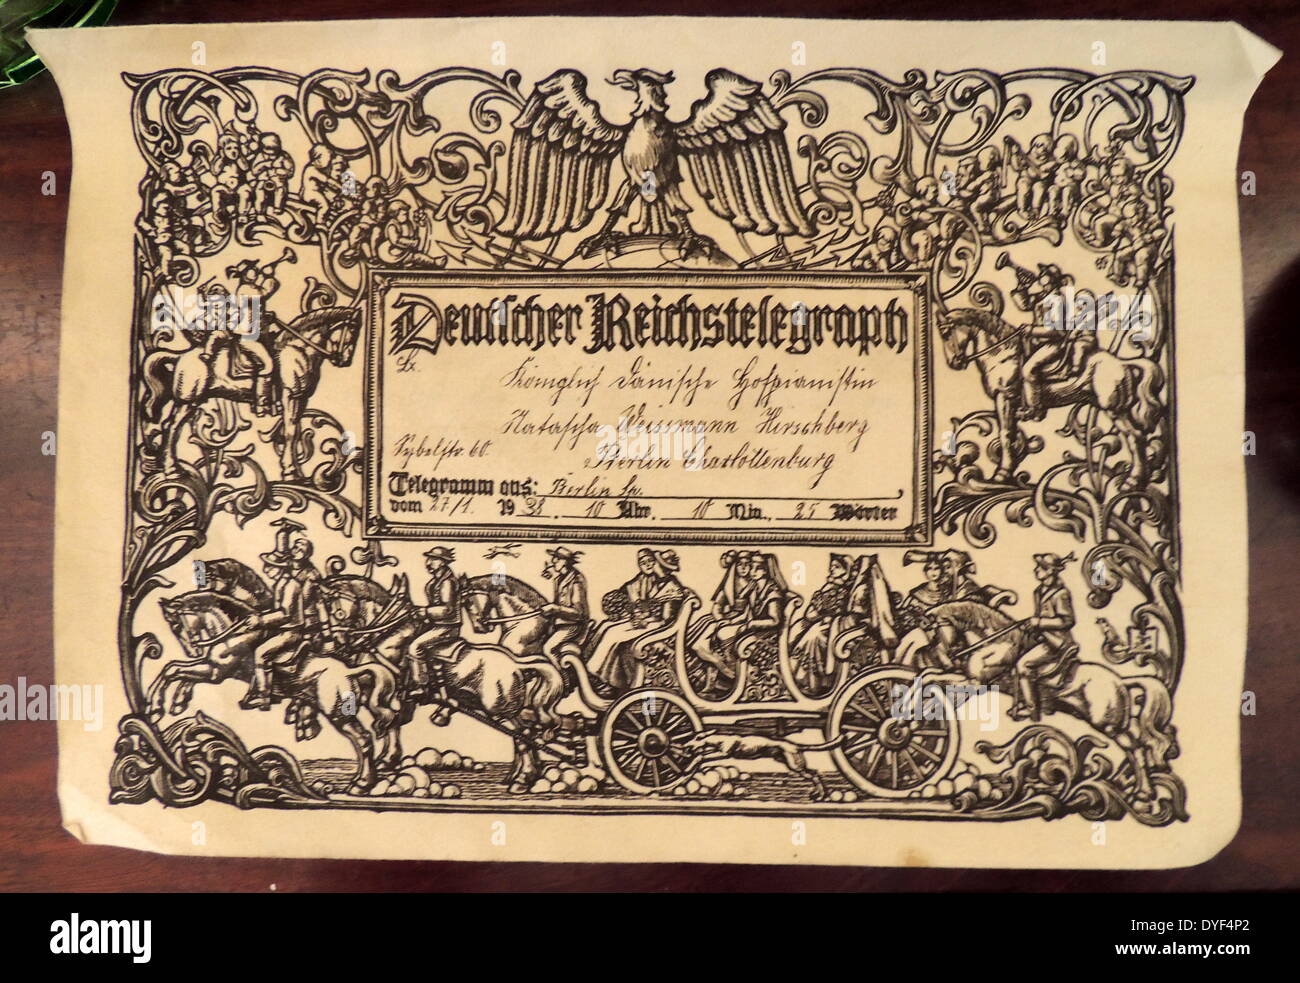 Deutscher Reichstelegraph
Lx.
Königlich Dänische Hofpianistin
Natascha Weissmann Hirschberg
Sybelstr. 60. Berlin Charlottenburg
Telegramm aus: Berlin
vom 27/1. 1938. 10 Uhr, 10 Min., 25 Wörter
alamy
www.alamy.com
DYF4P2